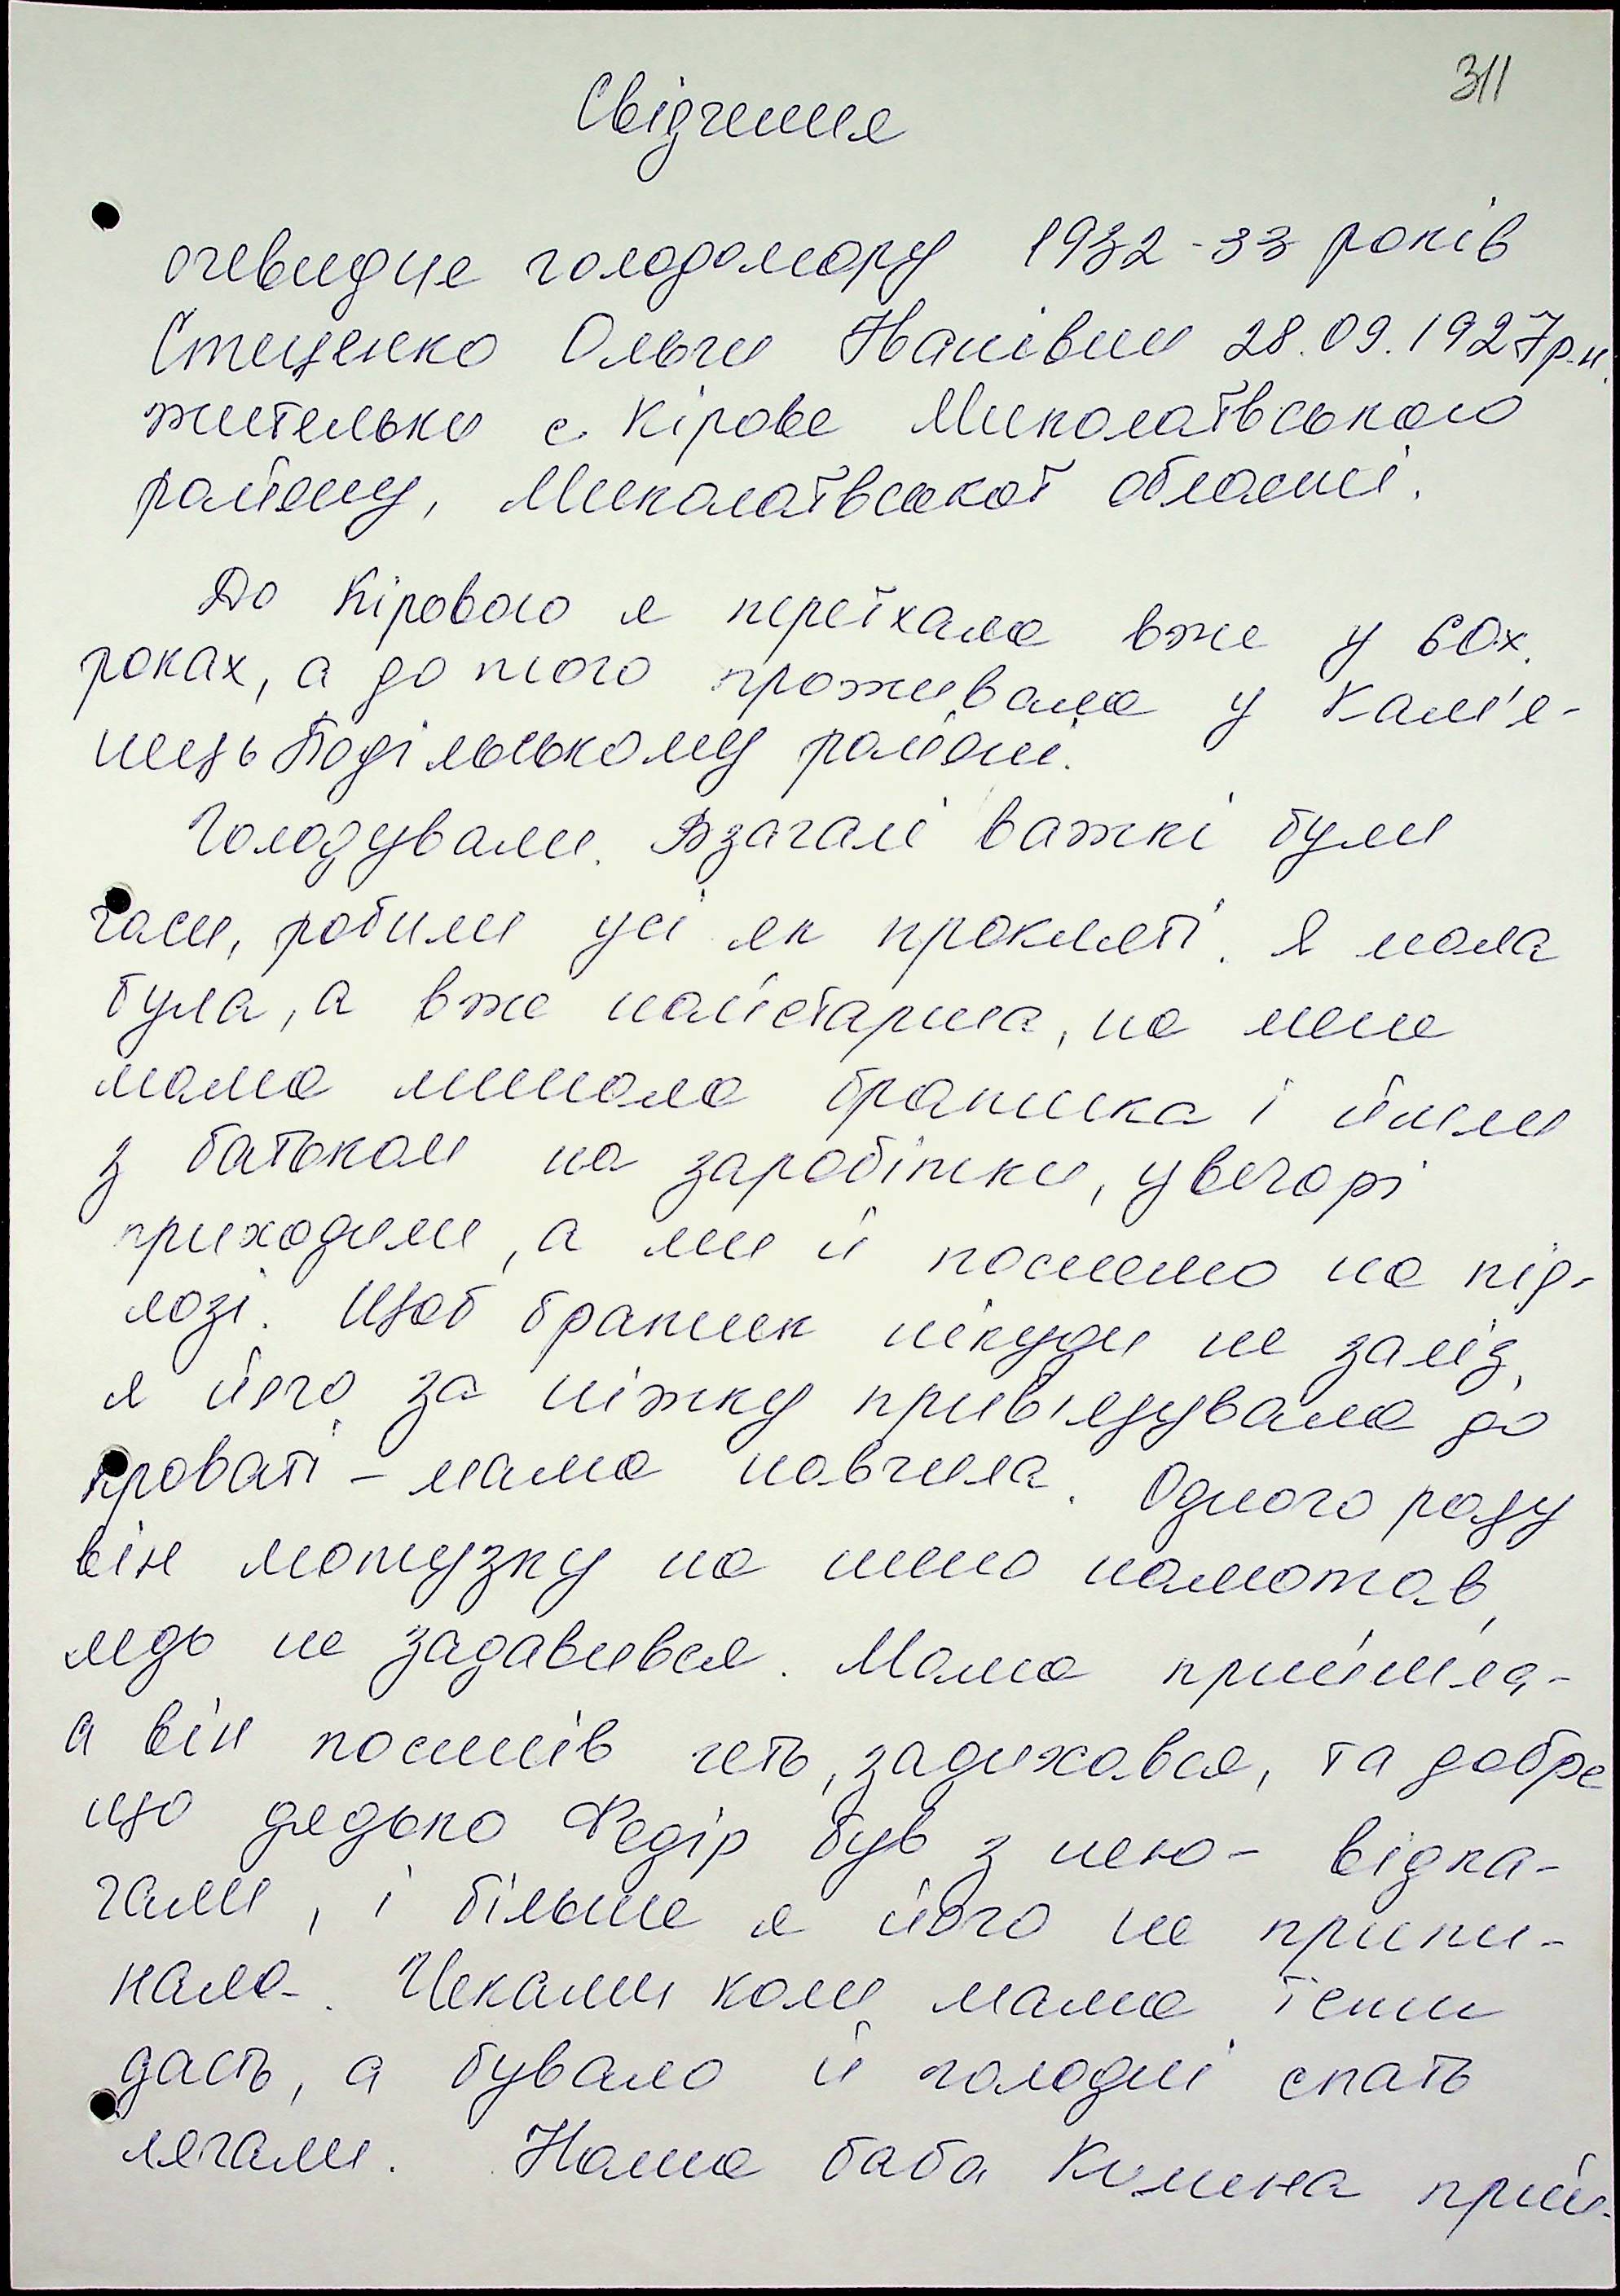 311
Свідчення
очевидця голодомору 1932-33 років
Стеценко Ольги Іванівни 28.09.1927р.н.
жительки с. Кірове Миколаївського
району, Миколаївської області.
До Кірового я переїхала вже у 60х.
роках, а до того проживала у Кам'я-
нець Подільському районі.
Голодували. Взагалі важкі були
часи, робили усі як прокляті. Я мала
була, а вже найстарша, на мене
мама лишала братика і йшли
з батьком на заробітки, увечорі
приходили, а ми й поснемо на під-
лозі. Щоб братик нікуди не заліз,
я його за ніжку прив'язувала до
кроваті - мама навчила. Одного разу
він мотузку на шию намотав,
ледь не задавився. Мама прийшла-
а він посинів геть, задихався, та добре
що дядько Федір був з нею - відка-
чали, і більше я його не припи-
нала. Чекали коли мама їсти
дасть, а бувало й голодні спать
лягали. Наша баба Килина прий-